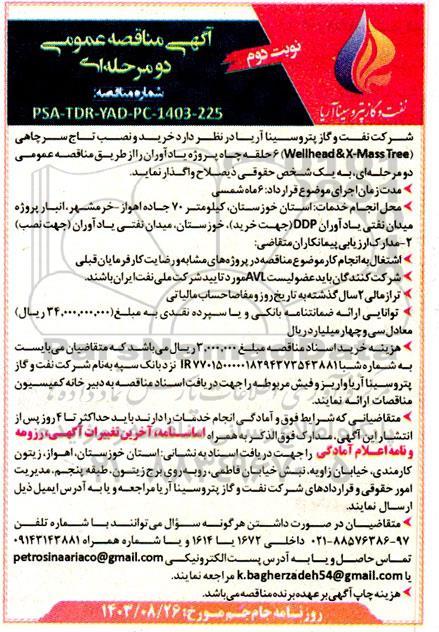 آگهی مناقصه عمومی
دو مرحله‌ای
نوبت دوم
شماره مناقصه:
PSA-TDR-YAD-PC-1403-225
نفت و گاز پتروسینا آریا
شرکت نفت و گاز پتروسینا آریا در نظر دارد خرید و نصب تاج سرچاهی
(Wellhead & X-Mass Tree) ۶ حلقه چاه پروژه یادآوران را از طریق مناقصه عمومی
دو مرحله‌ای، به یک شخص حقوقی ذیصلاح واگذار نماید.
مدت زمان اجرای موضوع قرارداد: ۶ ماه شمسی
محل انجام خدمات: استان خوزستان، کیلومتر ۷۰ جاده اهواز - خرمشهر، انبار پروژه
میدان نفتی یادآوران DDP (جهت خرید)، خوزستان، میدان نفتی یادآوران (جهت نصب)
۲- مدارک ارزیابی پیمانکاران متقاضی:
اشتغال به انجام کار موضوع مناقصه در پروژه‌های مشابه و رضایت کارفرمایان قبلی
شرکت کنندگان باید عضو لیست AVL مورد تایید شرکت ملی نفت ایران باشند.
ترازمالی ۲ سال گذشته به تاریخ روز و مفاصا حساب مالیاتی
توانایی ارائه ضمانتنامه بانکی و یا سپرده نقدی به مبلغ (۳۴,۰۰۰,۰۰۰,۰۰۰ ریال)
معادل سی و چهار میلیارد ریال
هزینه خرید اسناد مناقصه مبلغ ۳,۰۰۰,۰۰۰ ریال می‌باشد که متقاضیان می‌بایست
به شماره شبا IR ۷۷۰۱۵۰۰۰۰۰۱۸۲۹۴۳۷۳۵۴۳۸۸۱ نزد بانک سپه به نام شرکت نفت و گاز
پتروسینا آریا واریز و فیش مربوطه را جهت دریافت اسناد مناقصه به دبیرخانه کمیسیون
مناقصات ارائه نمایند.
متقاضیانی که شرایط فوق و آمادگی انجام خدمات را دارند باید حداکثر تا ۴ روز پس از
انتشار این آگهی، مدارک فوق الذکر به همراه اساسنامه، آخرین تغییرات آگهی، رزومه
و نامه اعلام آمادگی را جهت دریافت اسناد به نشانی: استان خوزستان، اهواز، زیتون
کارمندی، خیابان زاویه، نبش خیابان فاطمی، روبه روی برج زیتون، طبقه پنجم، مدیریت
امور حقوقی و قراردادهای شرکت نفت و گاز پتروسینا آریا مراجعه و یا به آدرس ایمیل ذیل
ارسال نمایند.
متقاضیان در صورت داشتن هرگونه سؤال می‌توانند با شماره تلفن
۰۲۱-۸۸۵۷۶۳۸۶-۹۷ داخلی ۱۶۷۲ یا ۱۶۱۴ و یا شماره همراه ۰۹۱۴۳۱۴۳۸۸۱
تماس حاصل و یا به آدرس پست الکترونیکی petrosinaariaco@gmail.com
یا k.bagherzadeh54@gmail.com مراجعه نمایند.
هزینه چاپ آگهی بر عهده برنده مناقصه می‌باشد.
روزنامه جام جم مورخ: ۱۴۰۳/۰۸/۲۶